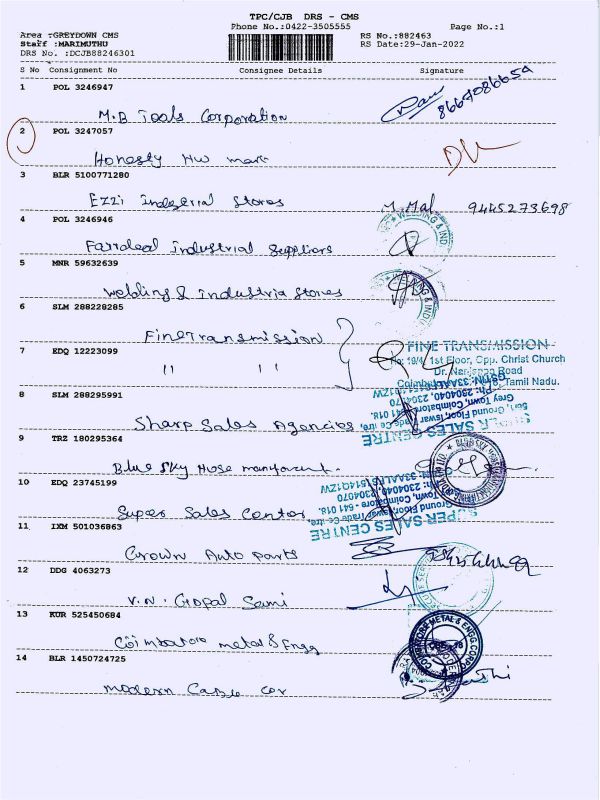 TPC/CJB DRS - CMS
Phone No.:0422-3505555 Page No.:1
Area :GREYDOWN CMS RS No.:882463
Staff :MARIMUTHU RS Date:29-Jan-2022
DRS No. :DCJB88246301
S No Consignment No Consignee Details Signature
1 POL 3246947
M.B Tools Corporation 8667086659
2 POL 3247057
Honesty HW mark
3 BLR 5100771280
Ezzi Indserial Stores M. Mal 9445273698
4 POL 3246946
Farraleal Industrial Suppliers
WELDING & IND
5 MNR 59632639
Welding & Industria Stores
6 SLM 288228285
Fine Transmission
FINE TRANSMISSION
7 EDQ 12223099
" "
1st Floor, Opp. Christ Church
Dr. Nanjappa Road
Tamil Nadu.
8 SLM 288295991
Sharp Sales Agencies
SUPER SALES CENTRE
Grey Town, Coimbatore
Ph: 2304040, 2304070
9 TRZ 180295364
Blue Sky Hose
10 EDQ 23745199
Super Sales Center
SUPER SALES CENTRE
Ground Floor,
Town, Coimbatore - 641 018.
Ph: 2304040, 2304070
11 IXM 501036863
Crown Auto parts
12 DDG 4063273
V.N. Gopal Sami
13 KUR 525450684
Coimbatore metal & Engg
COIMBATORE METAL & ENGG. CORPO
14 BLR 1450724725
modern Cable cor